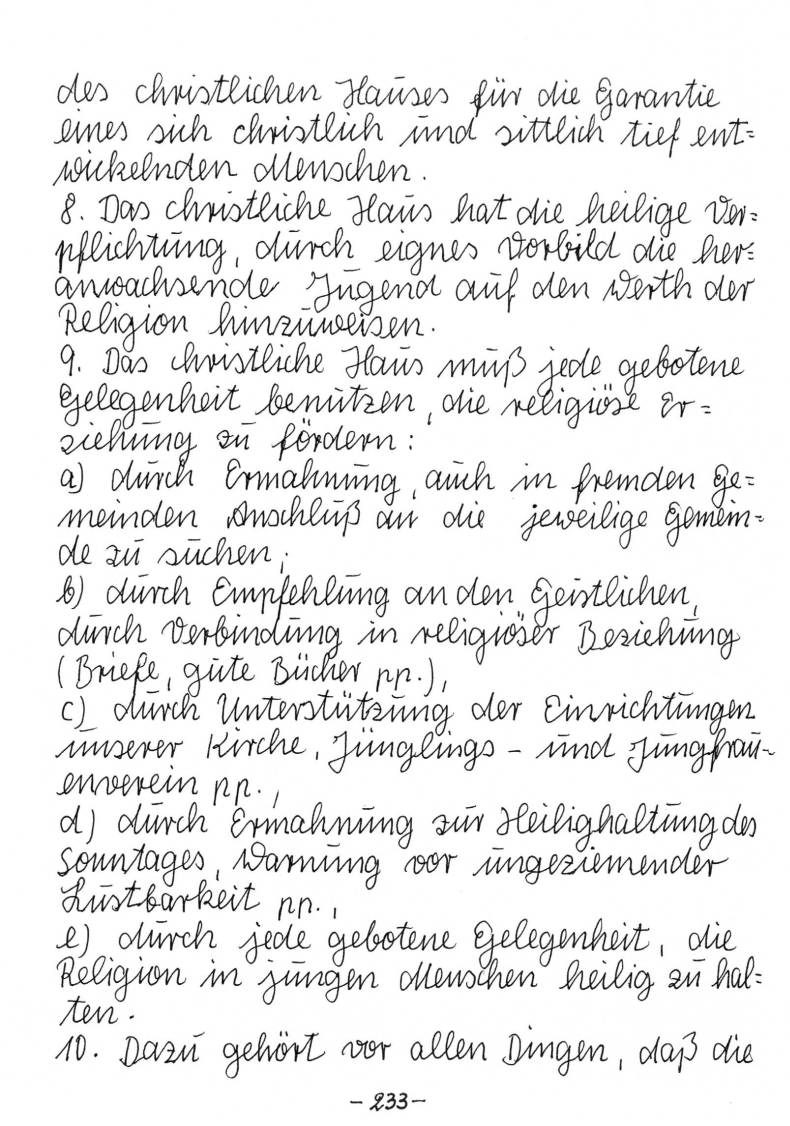 des christlichen Hauses für die Garantie
eines sich christlich und sittlich tief ent=
wickelnden Menschen.
8. Das christliche Haus hat die heilige Ver=
pflichtung, durch eignes Vorbild die her=
anwachsende Jugend auf den Werth der
Religion hinzuweisen.
9. Das christliche Haus muß jede gebotene
Gelegenheit benutzen, die religiöse Er=
ziehung zu fördern:
a) durch Ermahnung, auch in fremden Ge=
meinden Anschluß an die jeweilige Gemein=
de zu suchen,
b) durch Empfehlung an den Geistlichen,
durch Verbindung in religiöser Beziehung
(Briefe, gute Bücher pp.),
c) durch Unterstützung der Einrichtungen
unserer Kirche, Jünglings- und Jungfrau-
enverein pp.,
d) durch Ermahnung zur Heilighaltung des
Sonntages, Warnung vor ungeziemender
Lustbarkeit pp.,
e) durch jede gebotene Gelegenheit, die
Religion in jungen Menschen heilig zu hal=
ten.
10. Dazu gehört vor allen Dingen, daß die
-233-